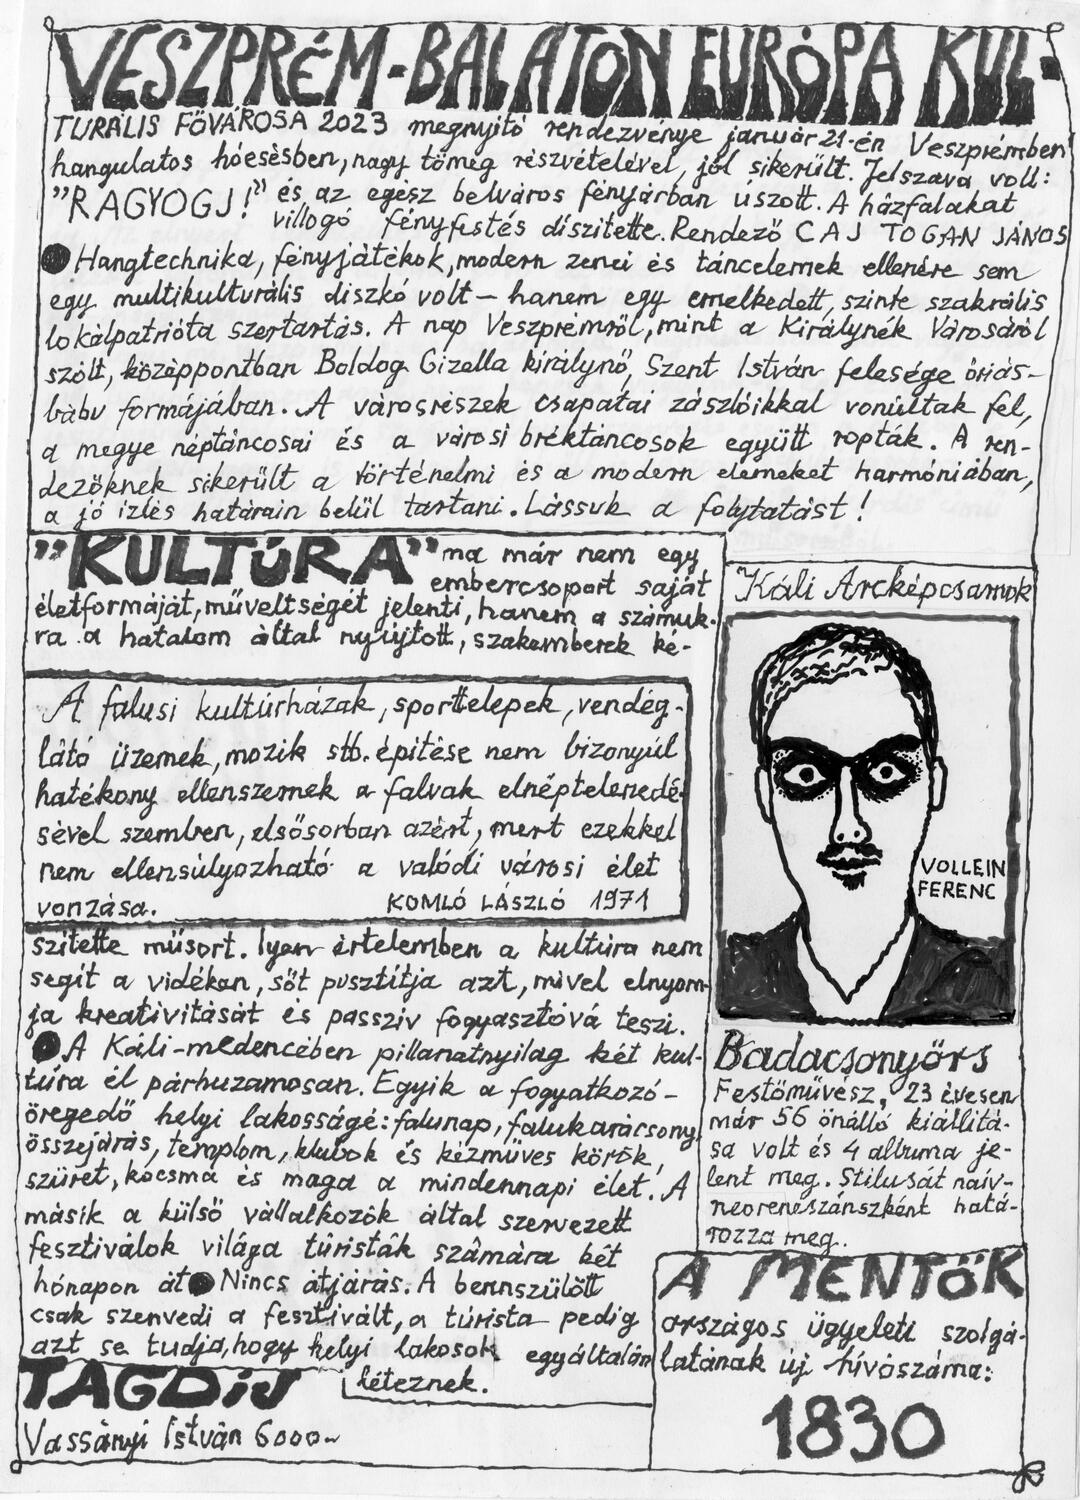 VESZPRÉM-BALATON EURÓPA KUL-
TURÁLIS FŐVÁROSA 2023 megnyitó rendezvénye január 21-én Veszprémben
hangulatos hóesésben, nagy tömeg részvételével, jól sikerült. Jelszava volt:
"RAGYOGJ!" és az egész belváros fényárban úszott. A házfalakat
villogó fényfestés díszitette. Rendező CAJ TOGAN JÁNOS
Hangtechnika, fényjátékok, modern zenei és táncelemek ellenére sem
egy multikulturális diszkó volt – hanem egy emelkedett, szinte szakrális
lokálpatrióta szertartás. A nap Veszprémről, mint a Királynék Városáról
szólt, középpontban Boldog Gizella királynő, Szent István felesége óriás-
bábu formájában. A városrészek csapatai zászlóikkal vonúltak fel,
a megye néptáncosai és a városi bréktáncosok együtt ropták. A ren-
dezőknek sikerült a történelmi és a modern elemeket harmóniában,
a jó izlés határain belül tartani. Lássuk a folytatást!
"KULTÚRA" ma már nem egy
embercsoport saját
életformáját, műveltségét jelenti, hanem a számuk-
ra a hatalom által nyújtott, szakemberek ké-
A falusi kultúrházak, sporttelepek, vendég-
látó üzemek, mozik stb. épitése nem bizonyúl
hatékony ellenszernek a falvak elnéptelenedé-
sével szemben, elsősorban azért, mert ezekkel
nem ellensúlyozható a valódi városi élet
vonzása. KOMLÓ LÁSZLÓ 1971
szitette műsort. Ilyen értelemben a kultúra nem
segit a vidéken, sőt pusztítja azt, mivel elnyom-
ja kreativitását és passziv fogyasztóvá teszi.
A Káli-medencében pillanatnyilag két kul-
túra él párhuzamosan. Egyik a fogyatkozó-
öregedő helyi lakosságé: falunap, falukarácsony,
összejárás, templom, klubok és kézműves körök,
szüret, kocsma és maga a mindennapi élet. A
másik a külső vállalkozók által szervezett
fesztiválok világa túristák számára két
hónapon át Nincs átjárás. A bennszülött
csak szenvedi a fesztivált, a túrista pedig
azt se tudja, hogy helyi lakosok egyáltalán
léteznek.
TAGDÍJ
Vassányi István 6000~
Káli Arcképcsarnok
VOLLEIN
FERENC
Badacsonyörs
Festőművész, 23 évesen
már 56 önálló kiállitá-
sa volt és 4 albuma je-
lent meg. Stilusát náív-
neoreneszánszként hatá-
rozza meg.
A MENTŐK
országos ügyeleti szolgá-
latának új hívószáma:
1830